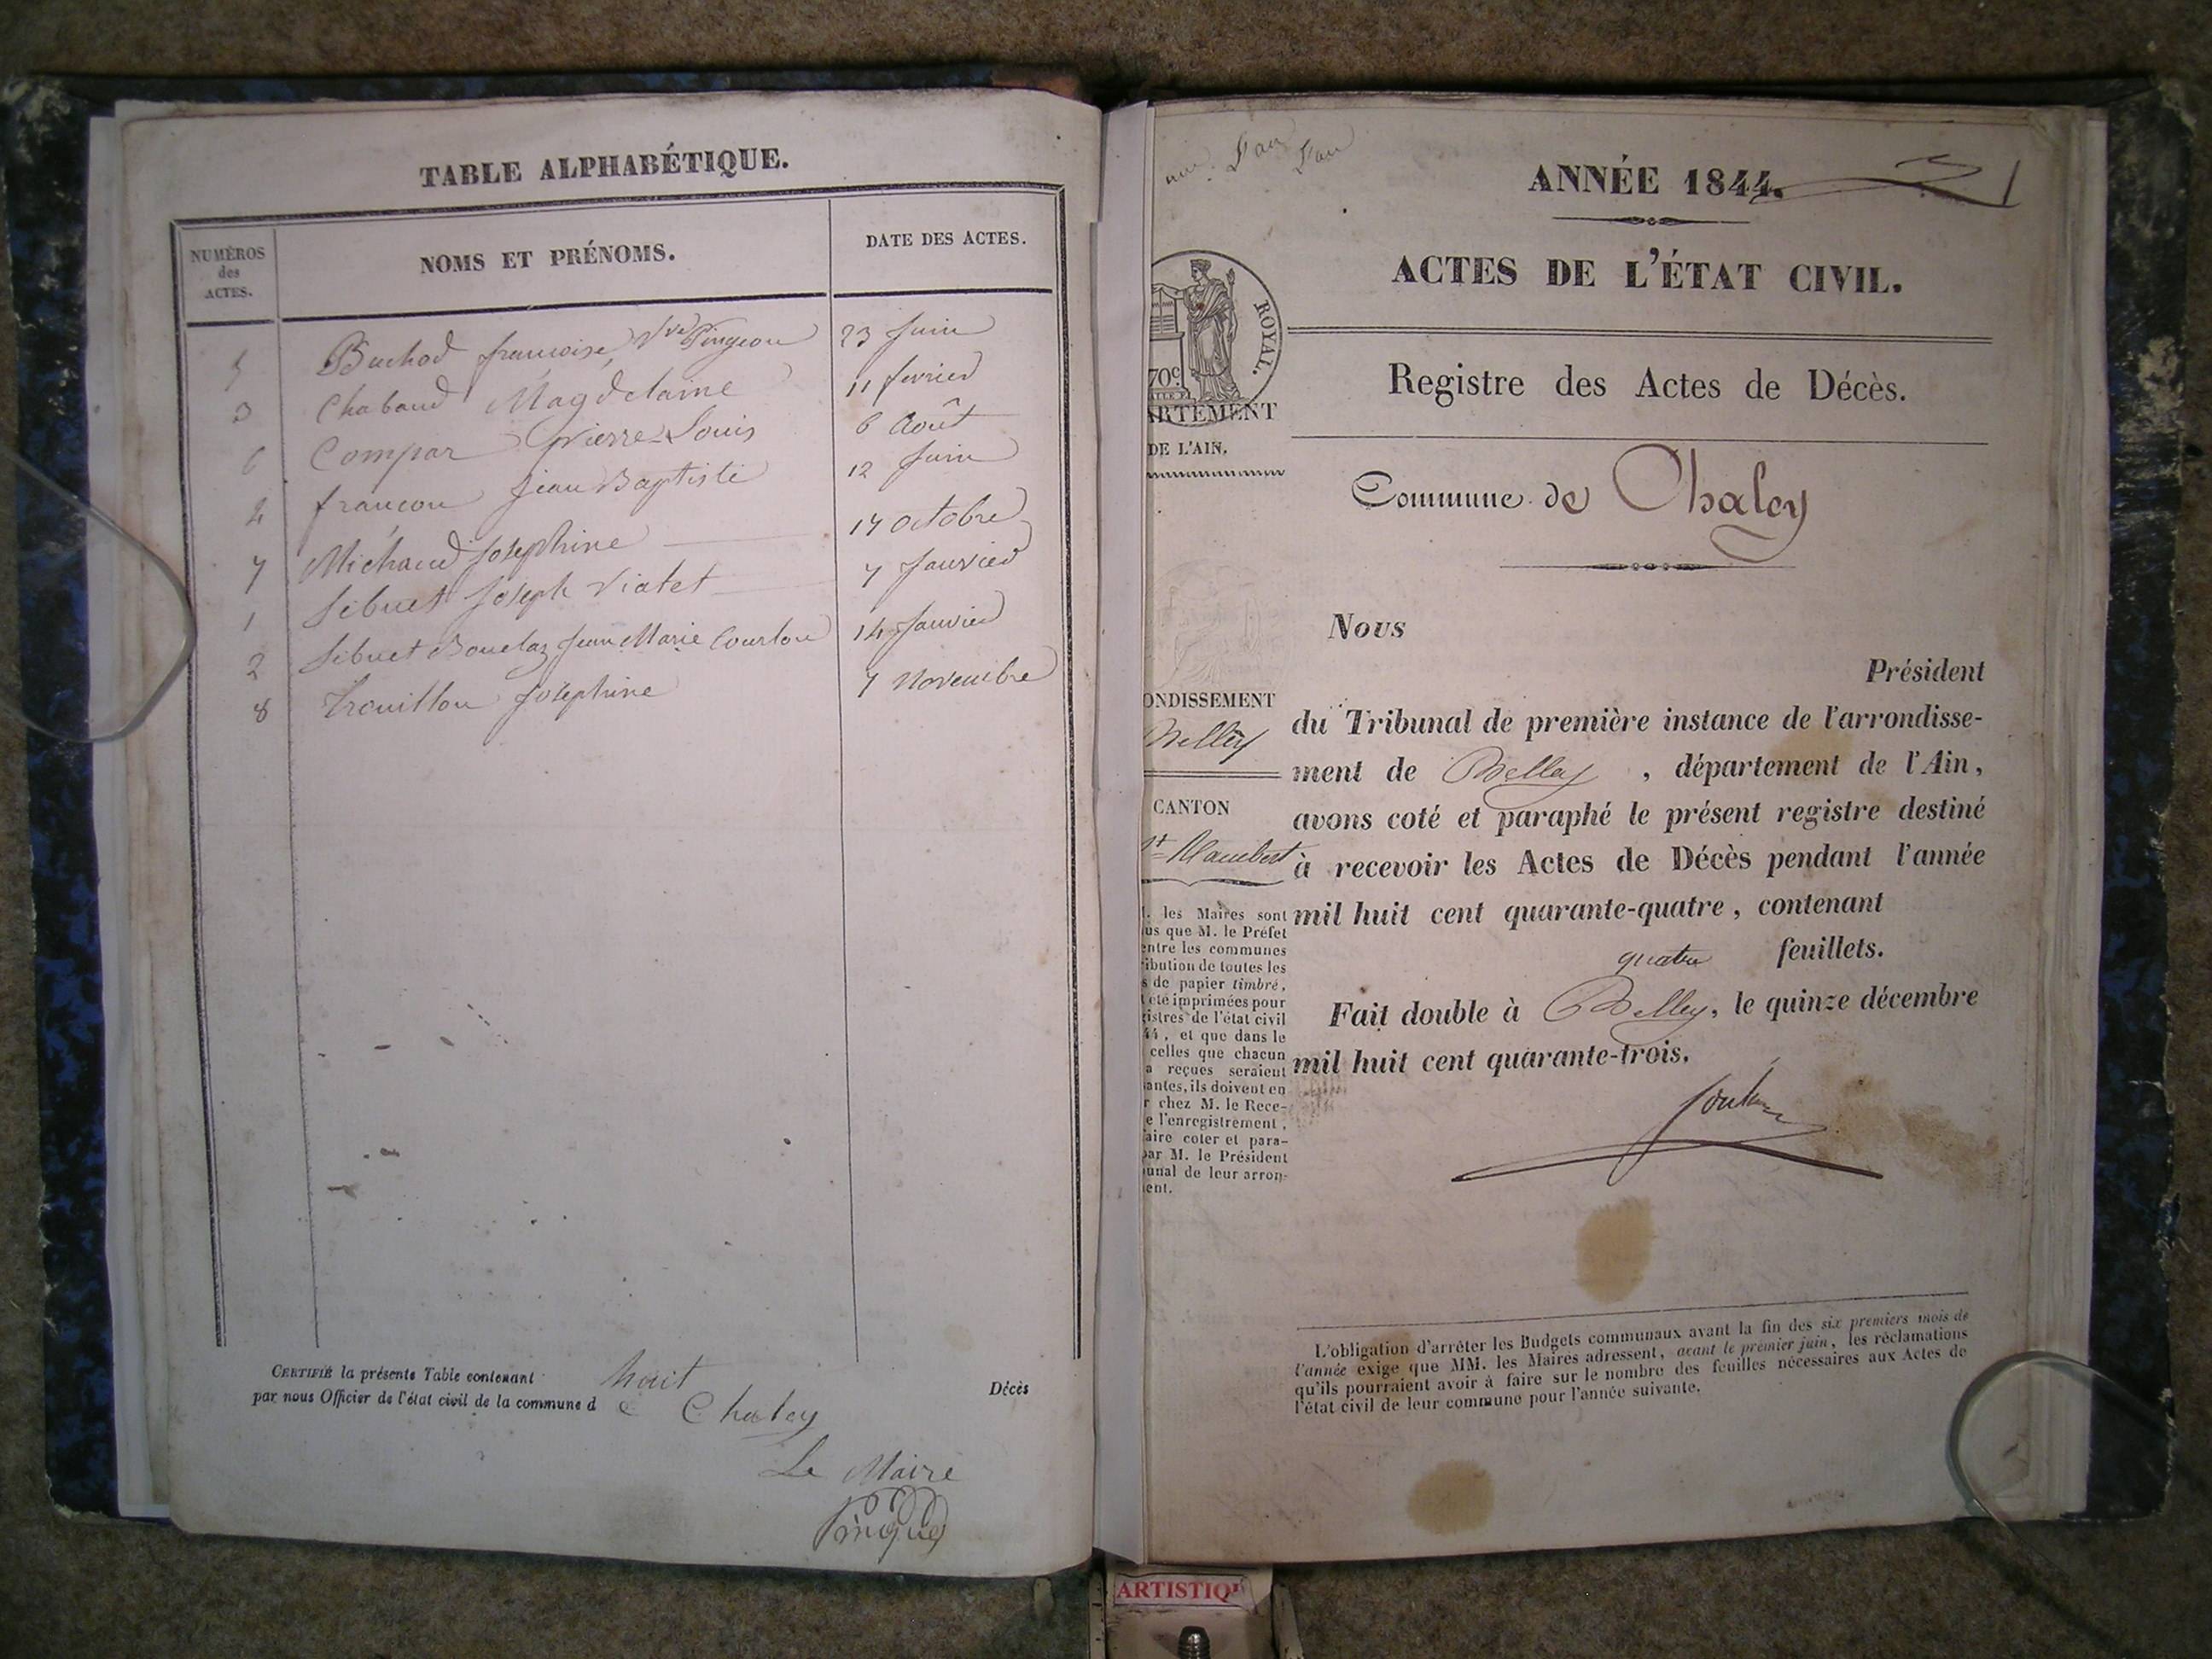 TABLE ALPHABÉTIQUE.
NUMÉROS
des
ACTES.
NOMS ET PRÉNOMS.
DATE DES ACTES.
5 Buchod françoise, Vve Pingeon 23 Juin
3 Chabaud Magdelaine 11 fevrier
6 Compar Pierre-Louis 6 Août
4 françon Jean Baptiste 12 Juin
7 Michaud Josephine 17 octobre
1 Sibuet Joseph Viatet 7 Janvier
2 Sibuet Jean Marie Courlon 14 Janvier
8 Trouillon Josephine 7 Novembre
CERTIFIÉ la présente Table contenant huit Décès
par nous Officier de l'état civil de la commune de Chaley
Le Maire
ANNÉE 1844.
ACTES DE L'ÉTAT CIVIL.
ROYAL.
70c
ARTEMENT
DE L'AIN.
Registre des Actes de Décès.
Commune de Chaley
Nous
Président
du Tribunal de première instance de l'arrondisse-
ment de Belley, département de l'Ain,
avons coté et paraphé le présent registre destiné
à recevoir les Actes de Décès pendant l'année
mil huit cent quarante-quatre, contenant
quatre feuillets.
Fait double à Belley, le quinze décembre
mil huit cent quarante-trois.
ONDISSEMENT
Belley
CANTON
St Rambert
. les Maires sont
us que M. le Préfet
entre les communes
ibution de toutes les
s de papier timbré,
t été imprimées pour
gistres de l'état civil
44, et que dans le
celles que chacun
a reçues seraient
antes, ils doivent en
r chez M. le Rece-
e l'enregistrement,
aire coter et para-
par M. le Président
unal de leur arron-
ent.
L'obligation d'arrêter les Budgets communaux avant la fin des six premiers mois de
l'année exige que MM. les Maires adressent, avant le premier juin, les réclamations
qu'ils pourraient avoir à faire sur le nombre des feuilles nécessaires aux Actes de
l'état civil de leur commune pour l'année suivante.
ARTISTIQ